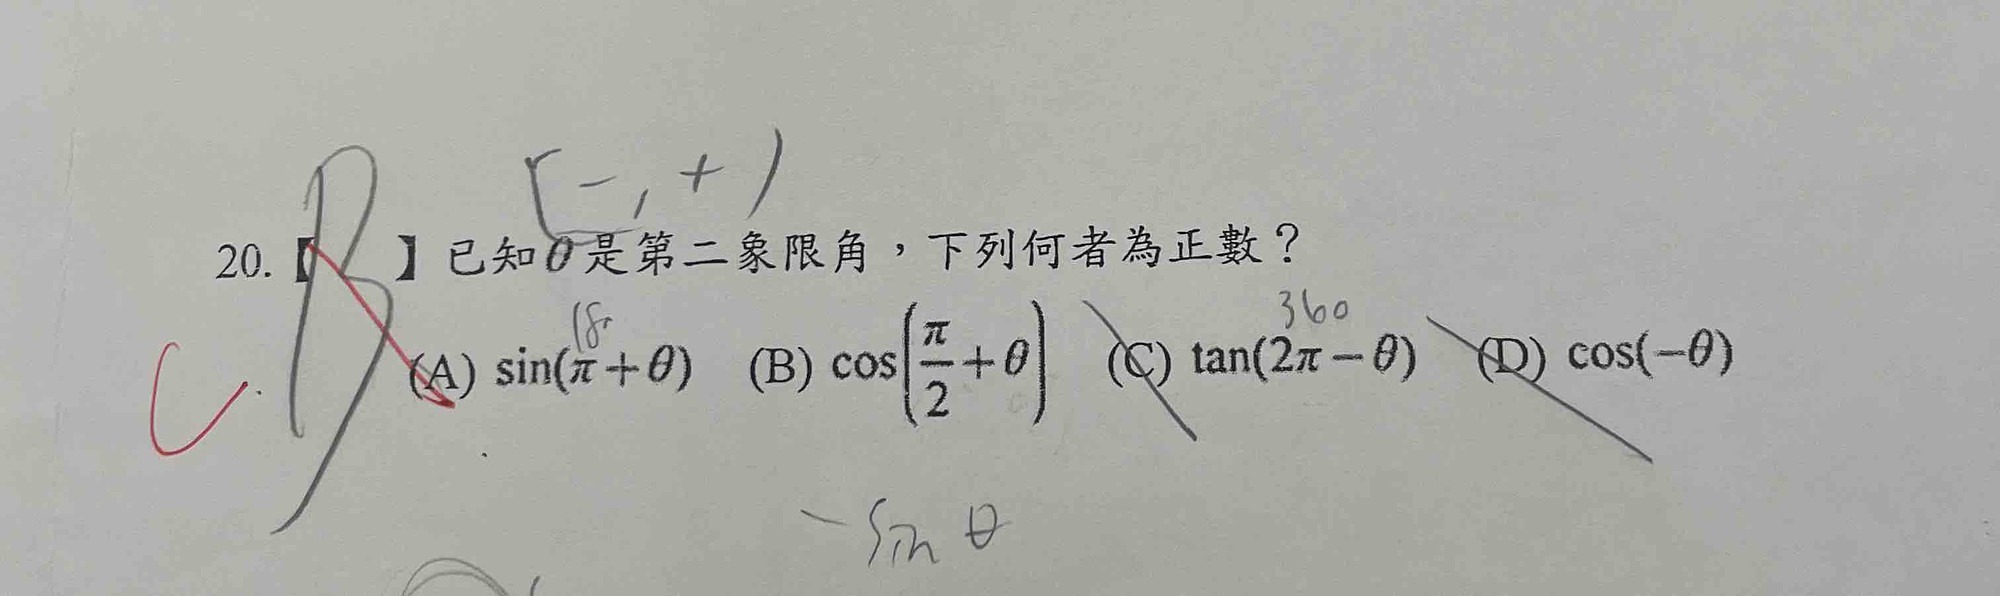 (-, +)
20.【B】已知θ是第二象限角，下列何者為正數？
18 360
C. (A) sin(π+θ) (B) cos(π/2+θ) (C) tan(2π−θ) (D) cos(−θ)
-sin θ